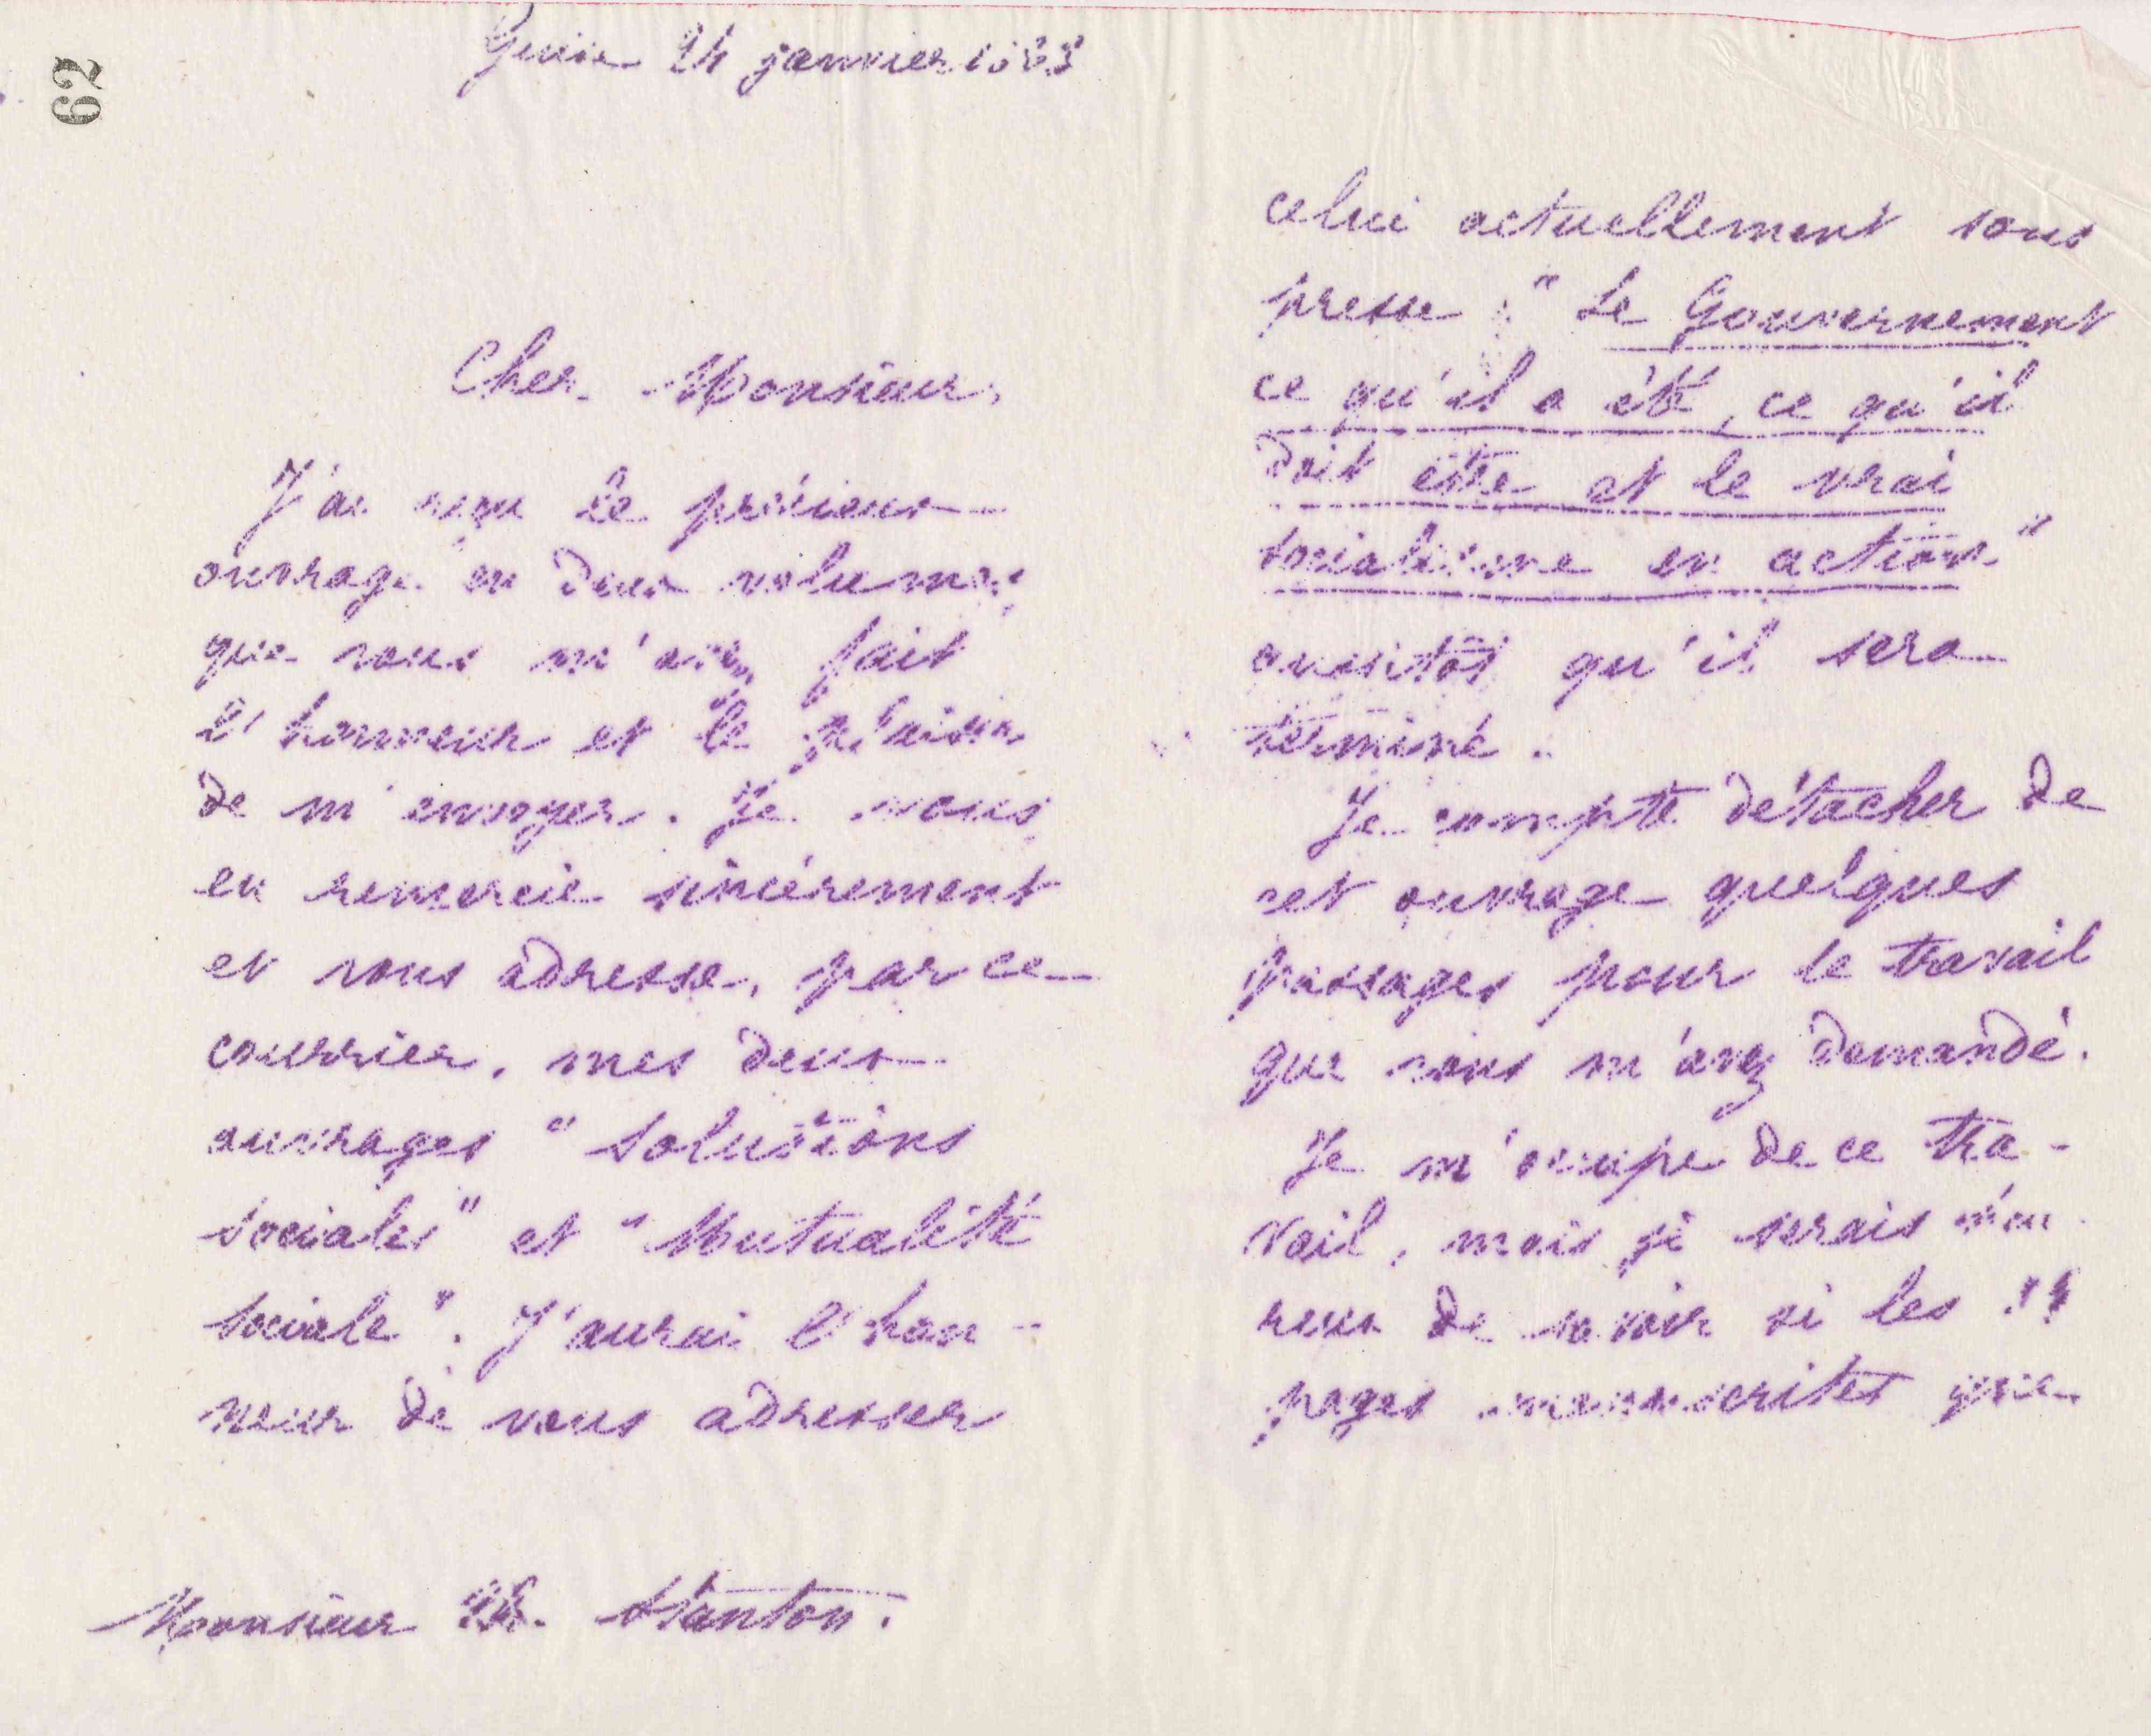 62
Guise 24 janvier 1883
Cher Monsieur,
J'ai reçu le précieux
ouvrage en deux volumes
que vous m'avez fait
l'honneur et le plaisir
de m'envoyer. Je vous
en remercie sincèrement
et vous adresse, par ce
courrier, mes deux
ouvrages "Solutions
sociales" et "Mutualité
sociale". J'aurai l'hon-
neur de vous adresser
Monsieur Stanton.
celui actuellement sous
presse : "Le Gouvernement
ce qu'il a été, ce qu'il
doit être et le vrai
socialisme en action"
aussitôt qu'il sera
terminé.
Je compte détacher de
cet ouvrage quelques
passages pour le travail
que vous m'avez demandé.
Je m'occupe de ce tra-
vail, mais je serais heu
reux de savoir si les
pages manuscrites que